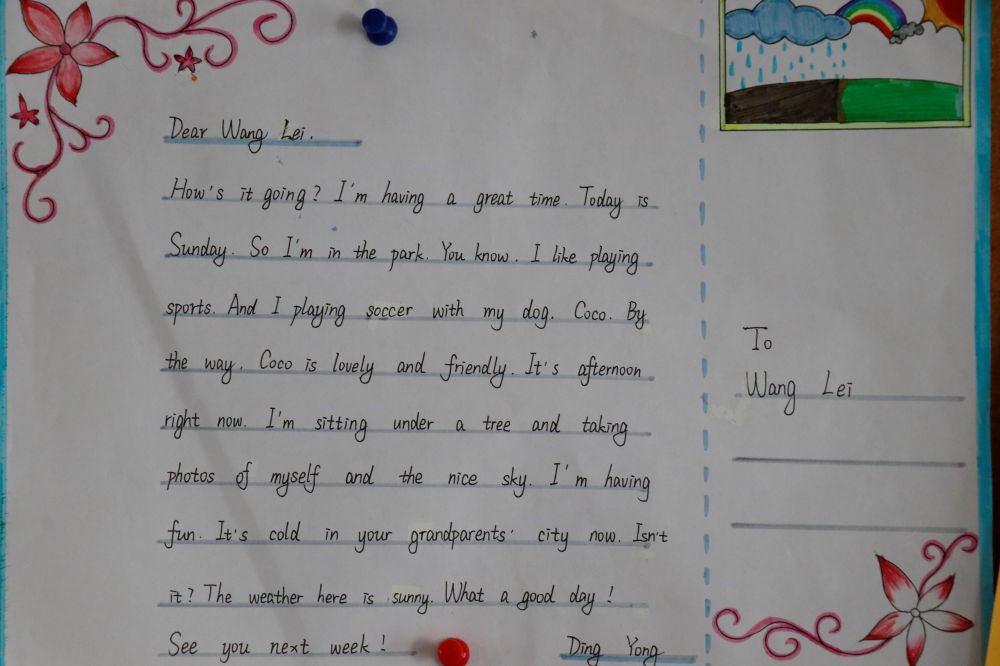 Dear Wang Lei.
How's it going? I'm having a great time. Today is
Sunday. So I'm in the park. You know. I like playing
sports. And I playing soccer with my dog. Coco. By
the way. Coco is lovely and friendly. It's afternoon
right now. I'm sitting under a tree and taking
photos of myself and the nice sky. I'm having
fun. It's cold in your grandparents' city now. Isn't
it? The weather here is sunny. What a good day!
See you next week!
Ding Yong
To
Wang Lei